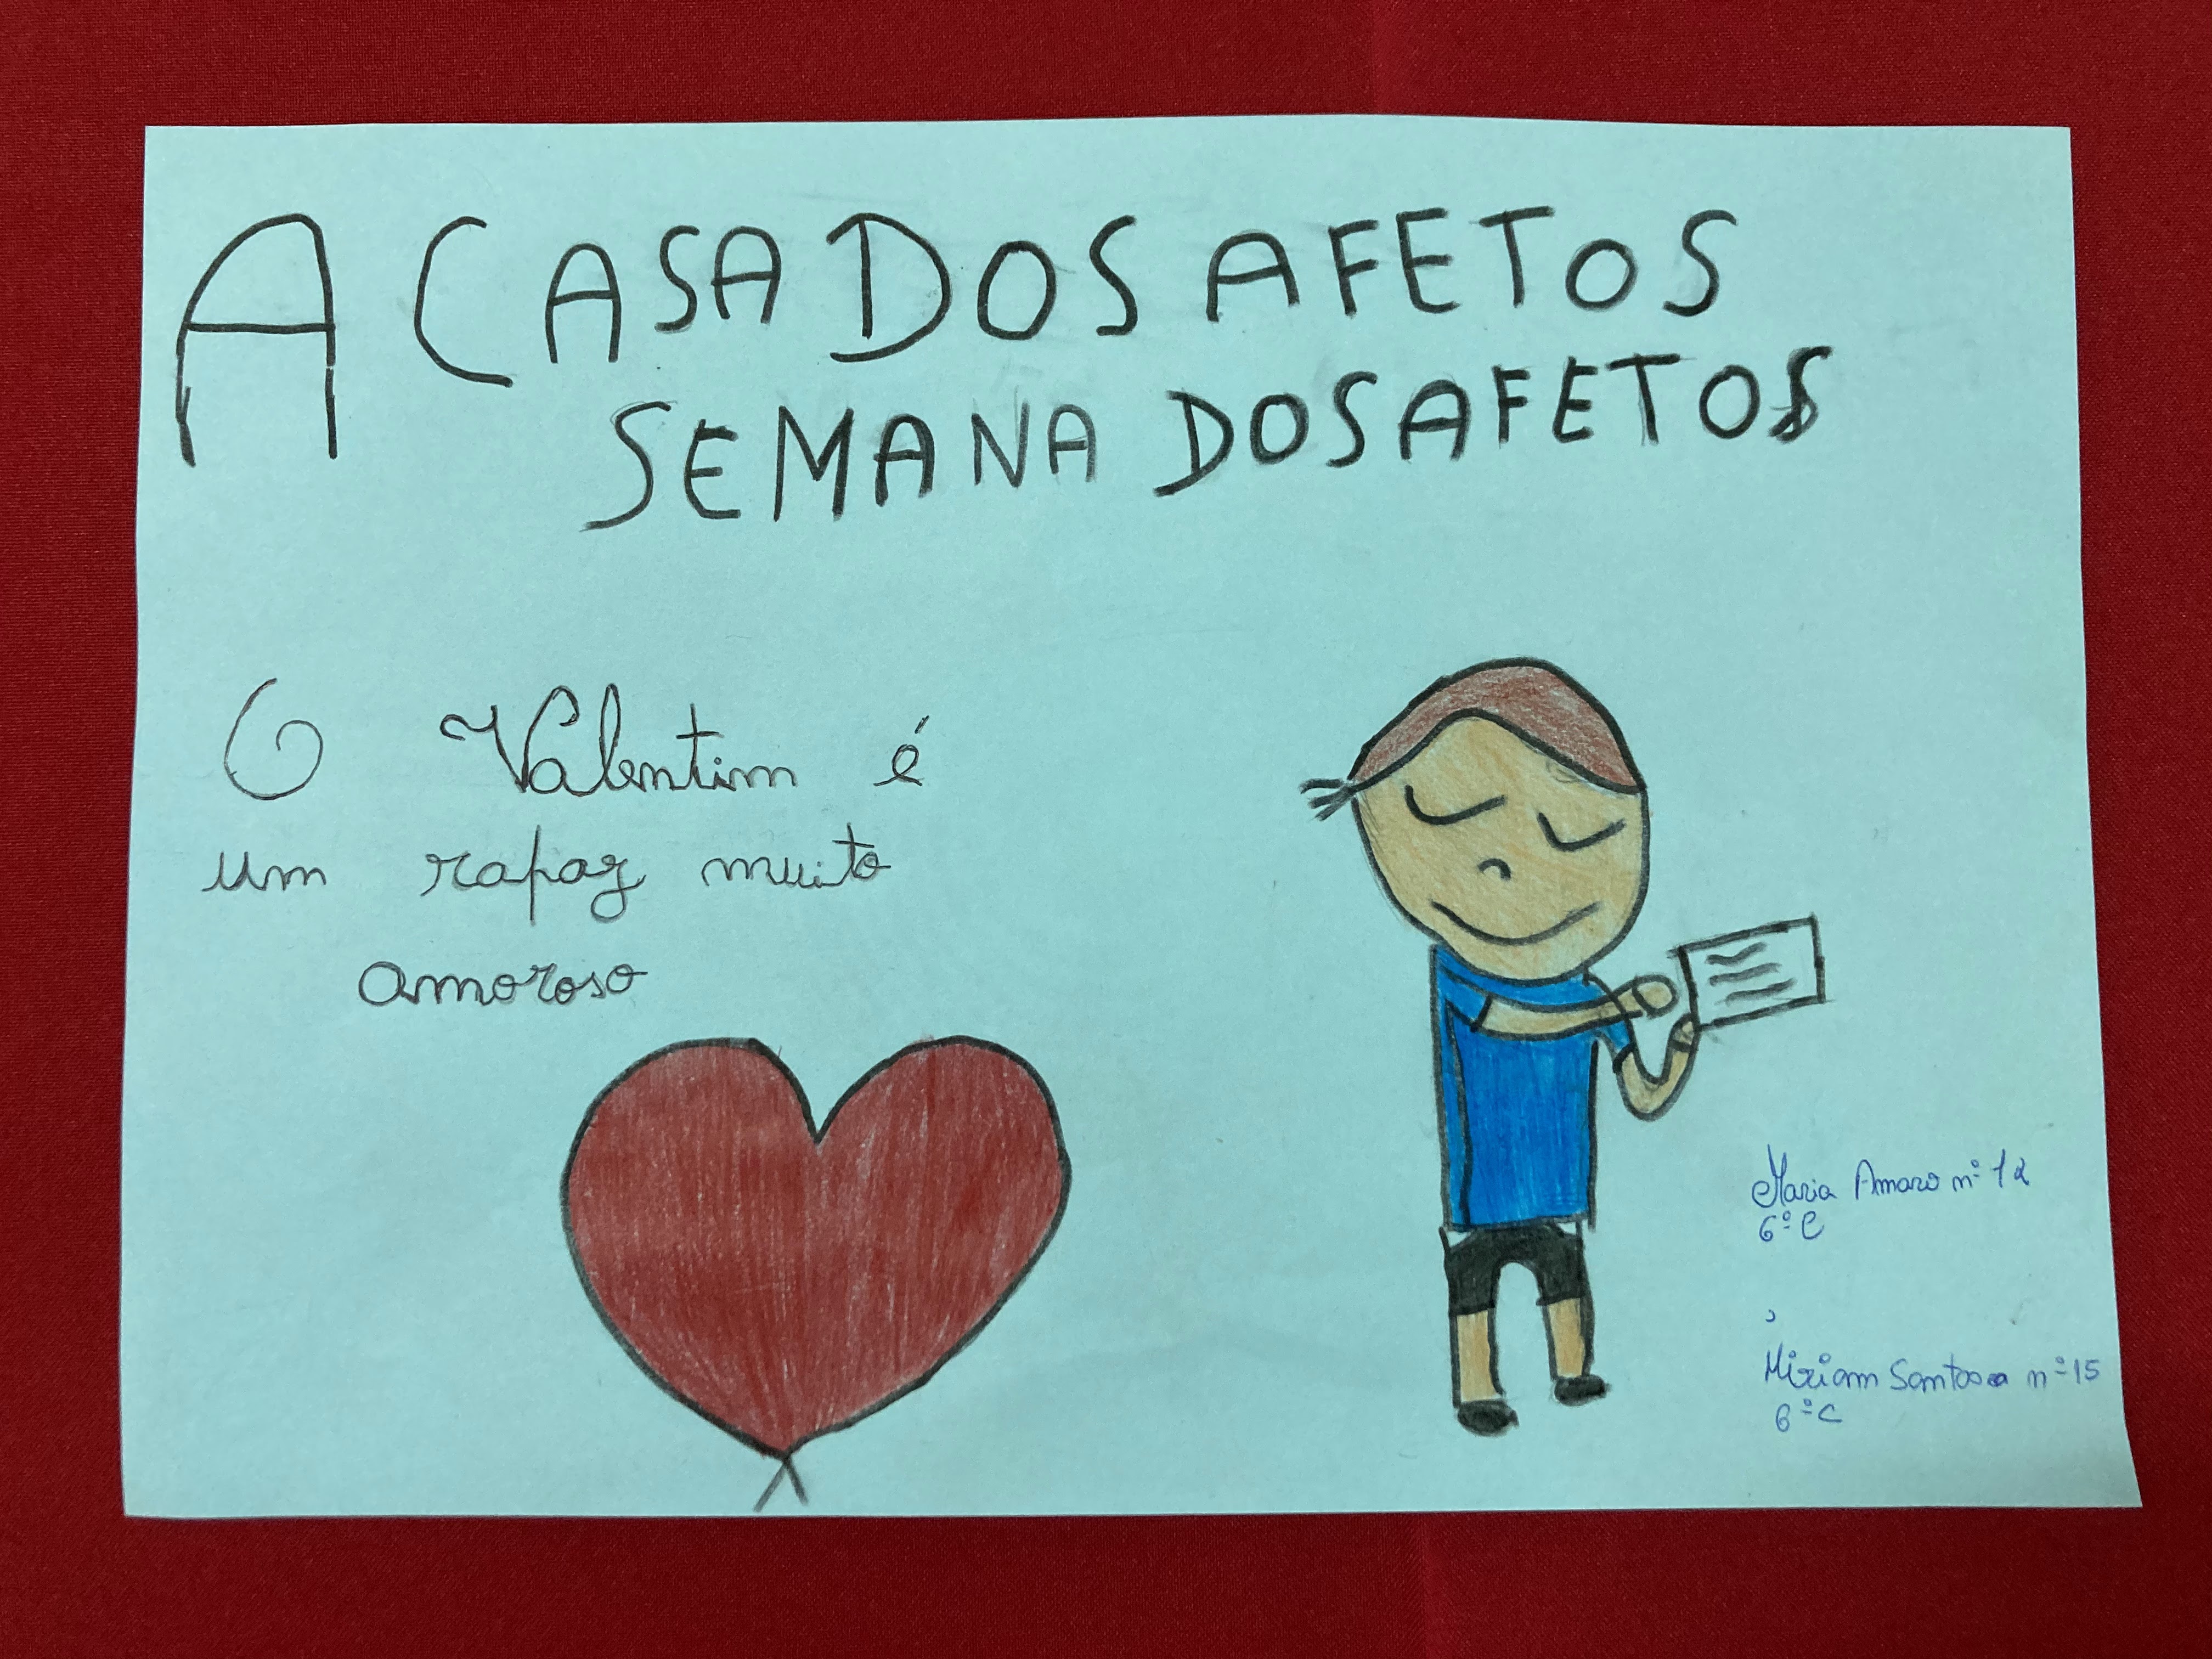 A CASA DOS AFETOS
SEMANA DOS AFETOS
O Valentim é
um rapaz muito
amoroso
Maria Amaro nº 12
6º C
Miriam Santos nº 15
6º C